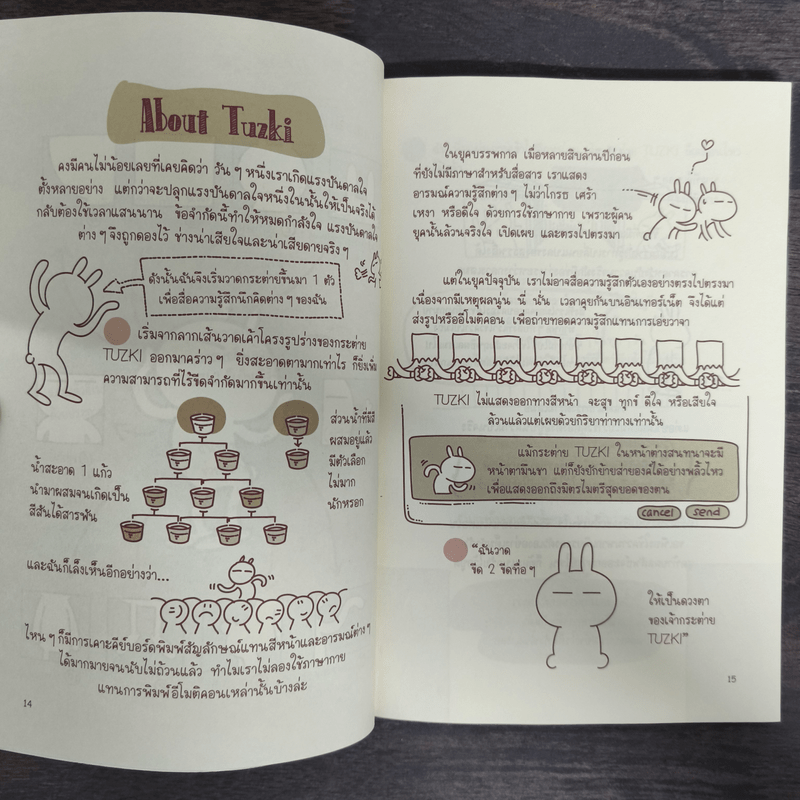 About Tuzki
คงมีคนไม่น้อยเลยที่เคยคิดว่า วัน ๆ หนึ่งเราเกิดแรงบันดาลใจ
ตั้งหลายอย่าง แต่กว่าจะปลุกแรงบันดาลใจหนึ่งในนั้นให้เป็นจริงได้
กลับต้องใช้เวลาแสนนาน ข้อจำกัดนี้ทำให้หมดกำลังใจ แรงบันดาลใจ
ต่าง ๆ จึงถูกดองไว้ ช่างน่าเสียใจและน่าเสียดายจริง ๆ
ดังนั้นฉันจึงเริ่มวาดกระต่ายขึ้นมา 1 ตัว
เพื่อสื่อความรู้สึกนึกคิดต่าง ๆ ของฉัน
เริ่มจากลากเส้นวาดเค้าโครงรูปร่างของกระต่าย
TUZKI ออกมาคร่าว ๆ ยิ่งสะอาดตามากเท่าไร ก็ยิ่งเพิ่ม
ความสามารถที่ไร้ขีดจำกัดมากขึ้นเท่านั้น
น้ำสะอาด 1 แก้ว
นำมาผสมจนเกิดเป็น
สีสันได้สารพัน
ส่วนน้ำที่มีสี
ผสมอยู่แล้ว
มีตัวเลือก
ไม่มาก
นักหรอก
และฉันก็เล็งเห็นอีกอย่างว่า...
ไหน ๆ ก็มีการเคาะคีย์บอร์ดพิมพ์สัญลักษณ์แทนสีหน้าและอารมณ์ต่าง ๆ
ได้มากมายจนนับไม่ถ้วนแล้ว ทำไมเราไม่ลองใช้ภาษากาย
แทนการพิมพ์อีโมติคอนเหล่านั้นบ้างล่ะ
14
ในยุคบรรพกาล เมื่อหลายสิบล้านปีก่อน
ที่ยังไม่มีภาษาสำหรับสื่อสาร เราแสดง
อารมณ์ความรู้สึกต่าง ๆ ไม่ว่าโกรธ เศร้า
เหงา หรือดีใจ ด้วยการใช้ภาษากาย เพราะผู้คน
ยุคนั้นล้วนจริงใจ เปิดเผย และตรงไปตรงมา
แต่ในยุคปัจจุบัน เราไม่อาจสื่อความรู้สึกตัวเองอย่างตรงไปตรงมา
เนื่องจากมีเหตุผลนู่น นี่ นั่น เวลาคุยกันบนอินเทอร์เน็ต จึงได้แต่
ส่งรูปหรืออีโมติคอน เพื่อถ่ายทอดความรู้สึกแทนการเอ่ยวาจา
TUZKI ไม่แสดงออกทางสีหน้า จะสุข ทุกข์ ดีใจ หรือเสียใจ
ล้วนแล้วแต่เผยด้วยกิริยาท่าทางเท่านั้น
แม้กระต่าย TUZKI ในหน้าต่างสนทนาจะมี
หน้าตามึนชา แต่ก็ยังยักย้ายส่ายองค์ได้อย่างพลิ้วไหว
เพื่อแสดงออกถึงมิตรไมตรีสุดยอดของตน
cancel send
"ฉันวาด
ขีด 2 ขีดทื่อ ๆ
ให้เป็นดวงตา
ของเจ้ากระต่าย
TUZKI"
15